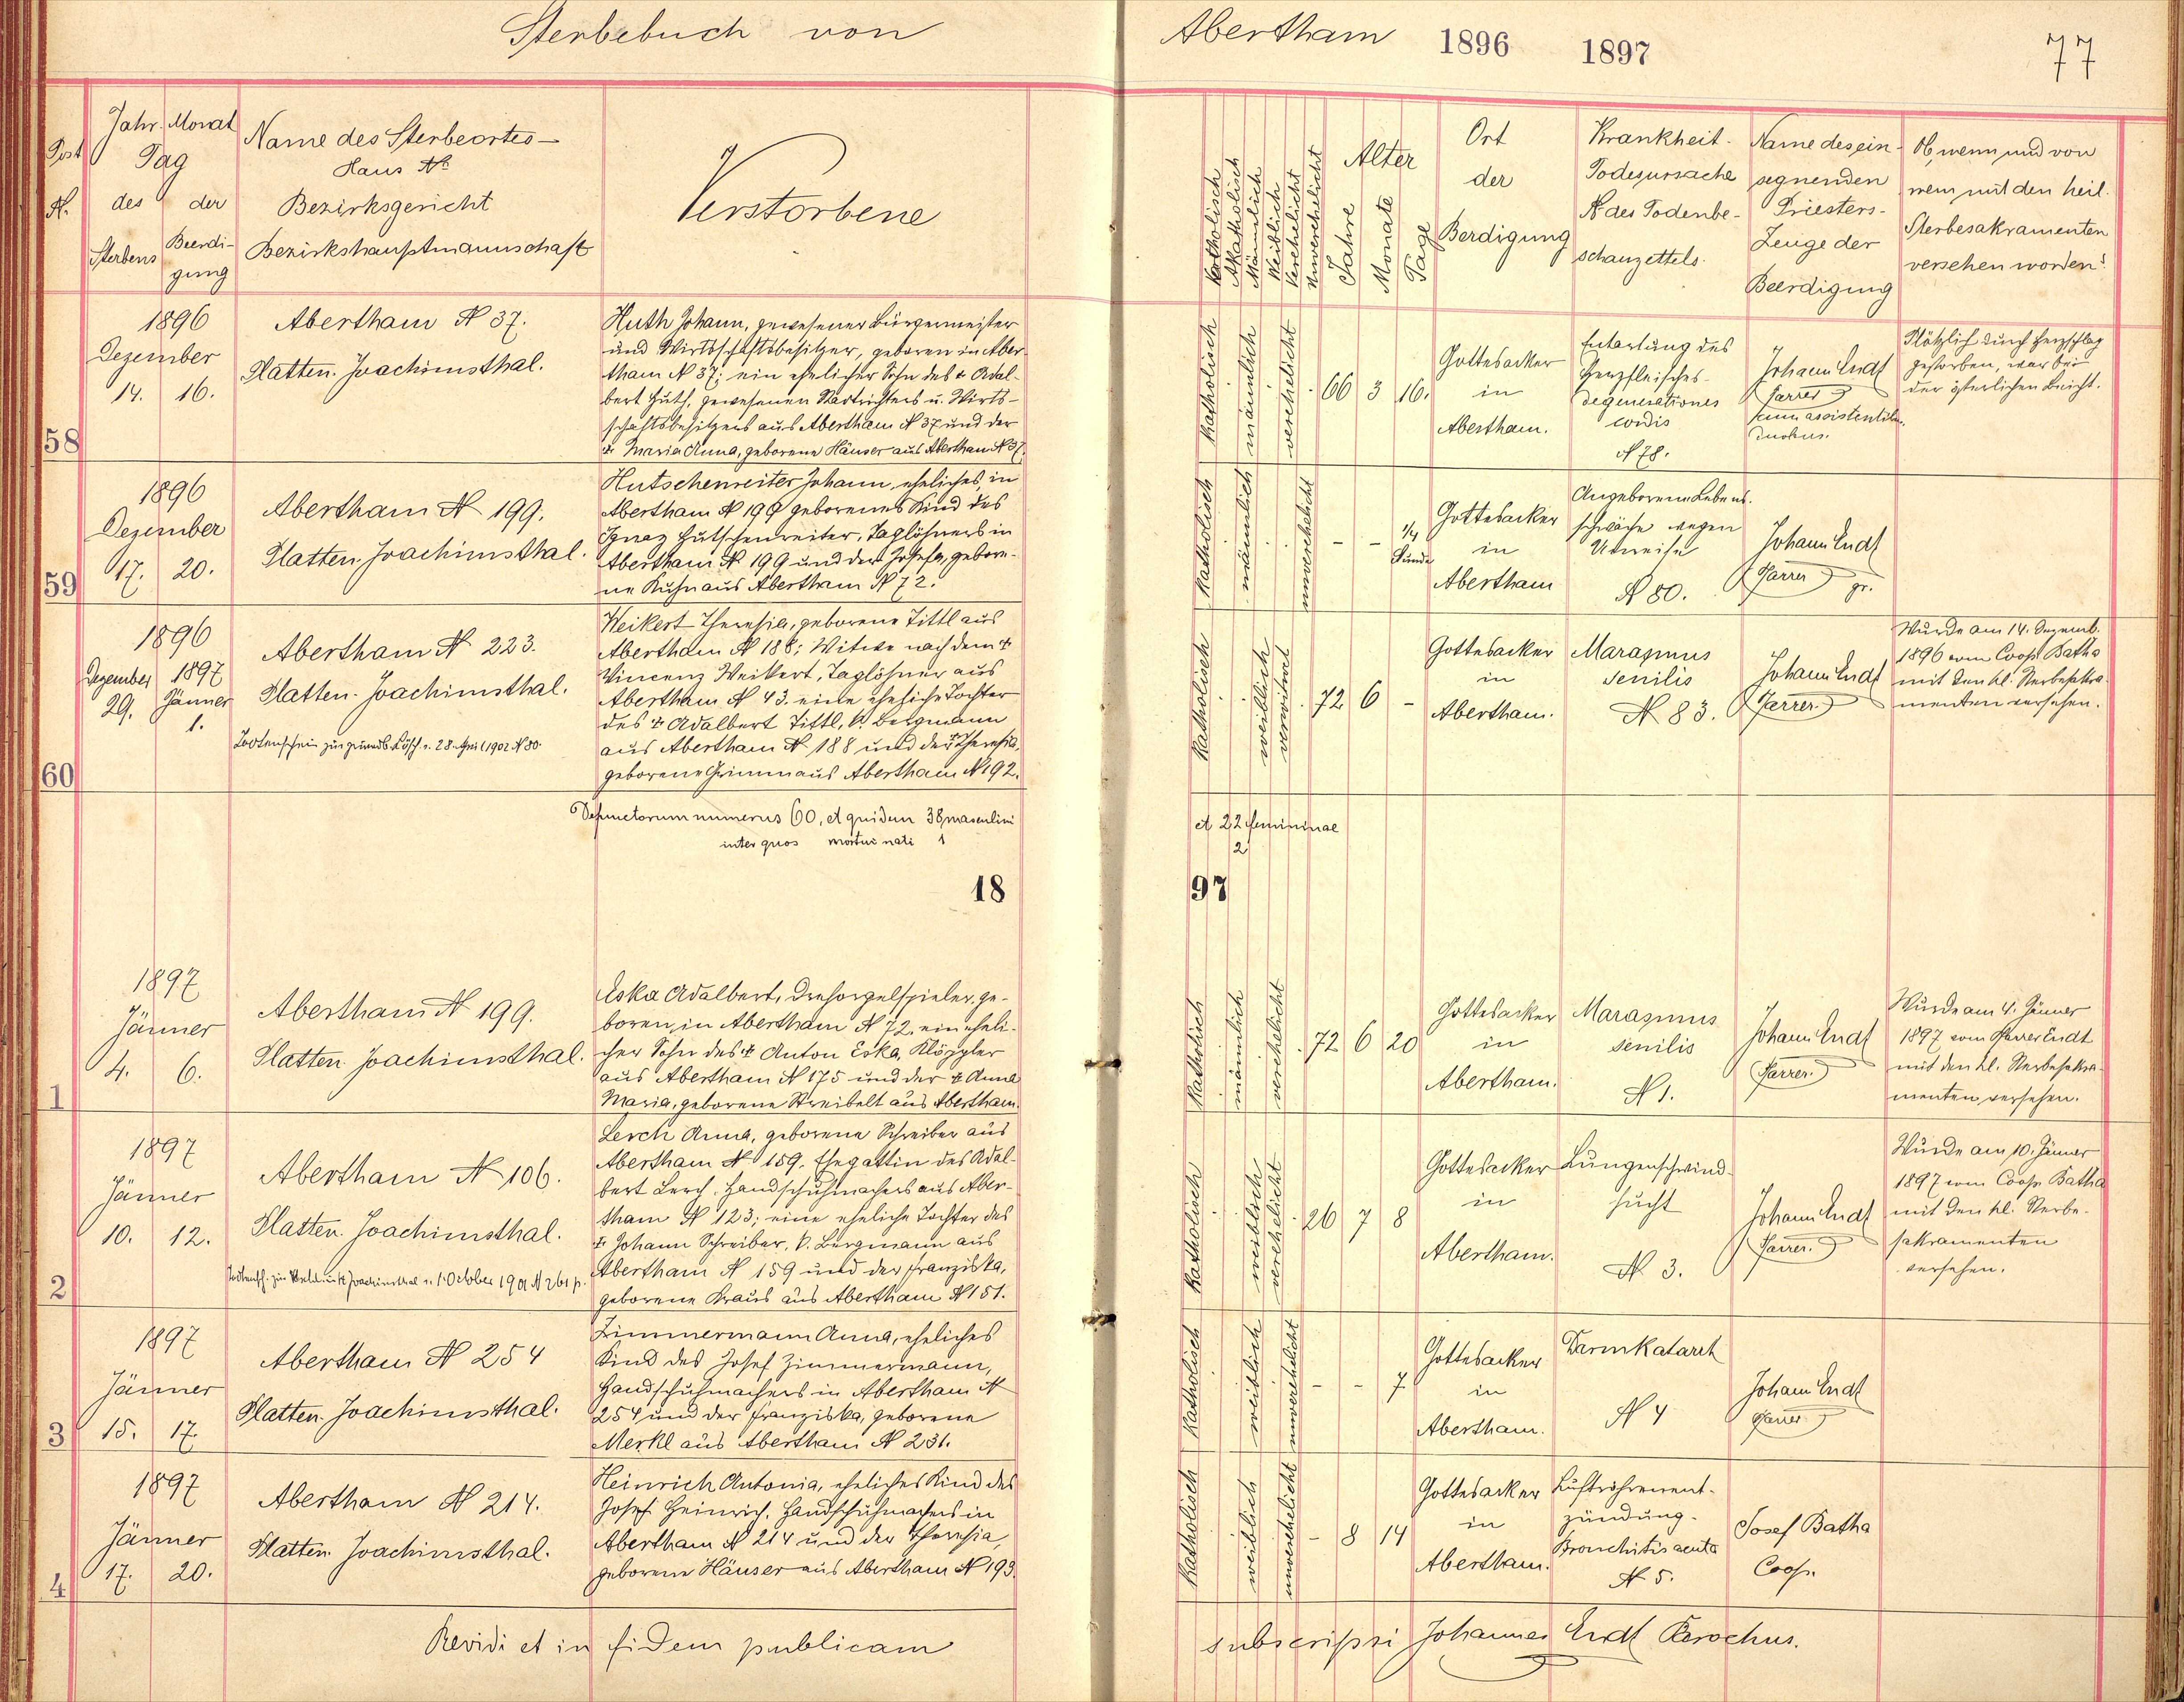 Sterbebuch von Abertham 1896 1897 77
Post
N.
Jahr. Monat
Tag
des der
Sterbens Beerdi-
gung
Name des Sterbeortes-
Haus No
Bezirksgericht
Bezirkshauptmannschaft
Verstorbene
Katholisch
Akatholisch
Mänlich
Weiblich
Verehelicht
Unverehelicht
Alter
Jahre
Monate
Tage
Ort
der
Berdigung
Krankheit.
Todesursache
N des Todenbe-
schauzettels.
Name des ein-
segnenden
Priesters-
Zeuge der
Beerdigung
Ob, wenn und von
wem mit den heil.
Sterbesakramenten
versehen worden?
58
1896
Dezember
14. 16.
Abertham N 37.
Platten. Joachimsthal.
Huth Johann, gewesener Bürgermeister
und Wirtschaftsbesitzer, geboren in Aber-
tham N 37; ein ehelicher Sohn des + Adal-
bert Huth, gewesenen Stadtrichters u. Wirt-
schaftsbesitzers aus Abertham N 37 und der
+ Maria Anna, geborene Häuser aus Abertham N 37.
katholisch
männlich
verehelicht
66 3 16.
Gottesacker
in
Abertham.
Entartung des
Herzfleisches-
degenerationes
cordis
N 78.
Johann Endt
Pfarrer
cum assistentibus
duobus.
Plötzlich durch Herzschlag
gestorben, war bei
der österlichen Beicht.
59
1896
Dezember
17. 20.
Abertham N 199.
Platten. Joachimsthal.
Hutschenreiter Johann, eheliches, in
Abertham N 199 geborenes Kind des
Ignaz Hutschenreiter, Taglöhners in
Abertham N 199 und der Josefa, gebore-
ne Kuhn aus Abertham N 72.
katholisch
männlich
unverehelicht
- - 1/4
Stunde
Gottesacker
in
Abertham
Angeborene Lebens-
schwäche wegen
Unreife
N 80.
Johann Endt
Pfarrer
60
1896
Dezember 1897
29. Jänner
1.
Abertham N 223.
Platten. Joachimsthal.
Todtenschein zur grundb. Lösch. v. 28. April 1902 N 80.
Weikert Theresia, geborene Tittl aus
Abertham N 188; Witwe nach dem +
Vincenz Weikert, Taglöhner aus
Abertham N 43. eine eheliche Tochter
des + Adalbert Tittl, k. Bergmann
aus Abertham N 188 und der + Theresia,
geborene Grimm aus Abertham N 192.
katholisch
weiblich
verwitwet
72 6 -
Gottesacker
in
Abertham.
Marasmus
senilis
N 83.
Johann Endt
Pfarrer.
Wurde am 14. Dezemb.
1896 vom Coop. Batha
mit den hl. Sterbesakra-
menten versehen.
Defunctorum numerus 60, et quidem 38 masculini et 22 femininae
inter quos mortui nati 1 2
18 97
1
1897
Jänner
4. 6.
Abertham N 199.
Platten. Joachimsthal.
Eska Adalbert, Drehorgelspieler, ge-
boren in Abertham N 72, ein eheli-
cher Sohn des + Anton Eska, Klöppler
aus Abertham N 175 und der + Anna
Maria, geborene Streibelt aus Abertham.
katholisch
männlich
verehelicht
72 6 20
Gottesacker
in
Abertham.
Marasmus
senilis
N 1.
Johann Endt
Pfarrer.
Wurde am 4. Jänner
1897 vom Pfarrer Endt
mit den hl. Sterbesakra-
menten versehen.
2
1897
Jänner
10. 12.
Abertham N 106.
Platten. Joachimsthal.
Joachimsthal v. 1. October 1901 N 261 p.
Lerch Anna, geborene Schreiber aus
Abertham N 159. Ehegattin des Adal-
bert Lerch, Handschuhmachers aus Aber-
tham N 123; eine eheliche Tochter des
+ Johann Schreiber, k. Bergmann aus
Abertham N 159 und der Franziska,
geborene Kraus aus Abertham N 151.
katholisch
weiblich
verehelicht
26 7 8
Gottesacker
in
Abertham.
Lungenschwind-
sucht
N 3.
Johann Endt
Pfarrer.
Wurde am 10. Jänner
1897 vom Coop. Batha
mit den hl. Sterbe-
sakramenten
versehen.
3
1897
Jänner
15. 17.
Abertham N 254
Platten. Joachimsthal.
Zimmermann Anna, eheliches
Kind des Josef Zimmermann,
Handschuhmachers in Abertham N
254 und der Franziska, geborene
Merkl aus Abertham N 231.
katholisch
weiblich
unverehelicht
- - 7
Gottesacker
in
Abertham.
Darmkatarrh
N 4
Johann Endt
Pfarrer
4
1897
Jänner
17. 20.
Abertham N 214.
Platten. Joachimsthal.
Heinrich Antonia, eheliches Kind des
Josef Heinrich, Handschuhmachers in
Abertham N 214 und der Theresia,
geborene Häuser aus Abertham N 193.
katholisch
weiblich
unverehelicht
- 8 14
Gottesacker
in
Abertham.
Luftröhrenent-
zündung-
Bronchitis acuta
N 5.
Josef Batha
Coop.
Revidi et in fidem publicam subscripsi Johannes Endt Parochus.